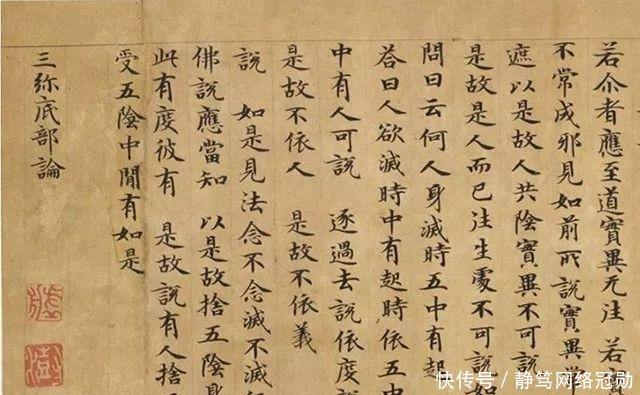 若尒者應至道實異无注 若
不常成邪見如前所說實異常
遮以是故人共陰實異不可說
是故是人而已注生處不可說如
問曰云何人身滅時五中有起
荅曰人欲滅時中有起時依五中
中有人可說 逐過去說依度說
是故不依人 是故不依義
說 如是見法念不念滅不滅
佛說應當知 以是故捨五陰
此有度彼有 是故說有人捨
受五陰中間有如是
三弥底部論
快传号／静笃网络冠勋